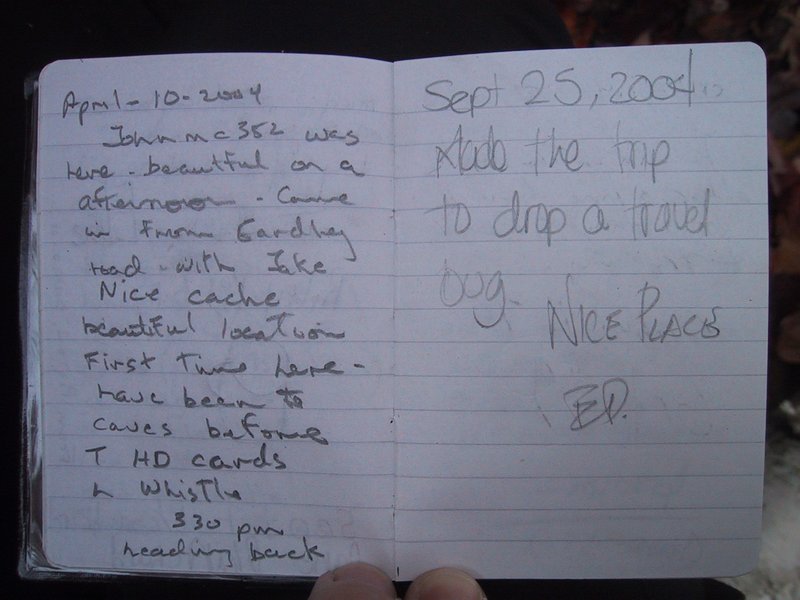 April-10-2004
Johnmc352 was
here - beautiful on a
afternoon - Came
in From Eardley
road - with Jake
Nice cache
beautiful location
First Time here -
have been to
caves before
T HD cards
L Whistle
330 pm
heading back
Sept 25, 2004
Made the trip
to drop a travel
bug.
NICE PLACE
ED.